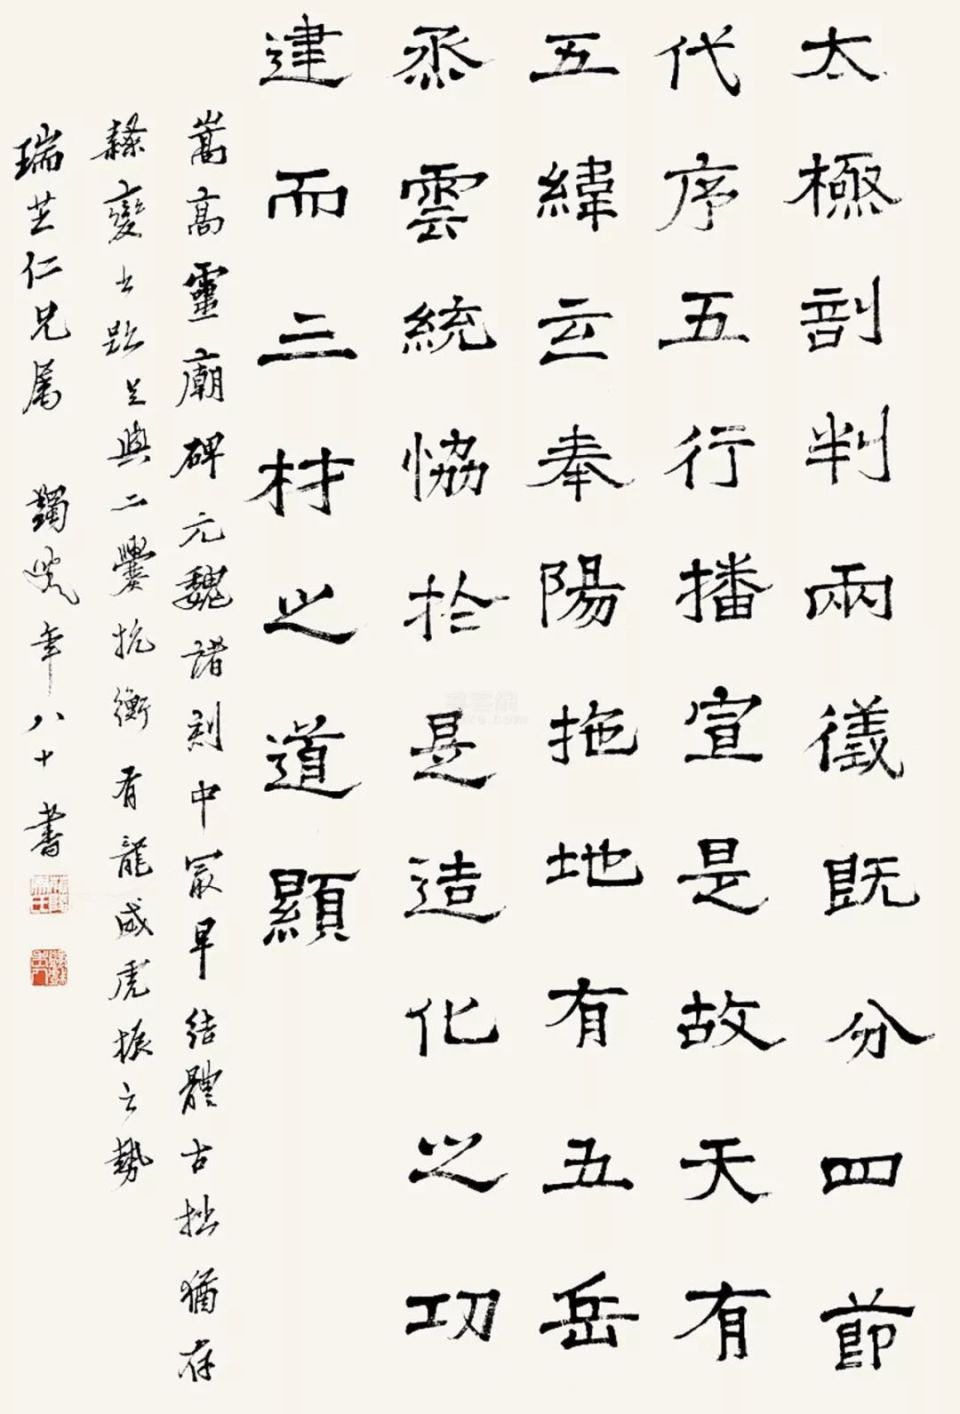 太極剖判兩儀既分四節
代序五行播宣是故天有
五緯主奉陽施地有五岳
烝雲統協於是造化之功
建而三材之道顯
嵩高靈廟碑元魏諸刻中最早結體古拙猶存
隸變之跡足與二爨抗衡有龍威虎振之勢
瑞芝仁兄屬 蠲叟年八十書